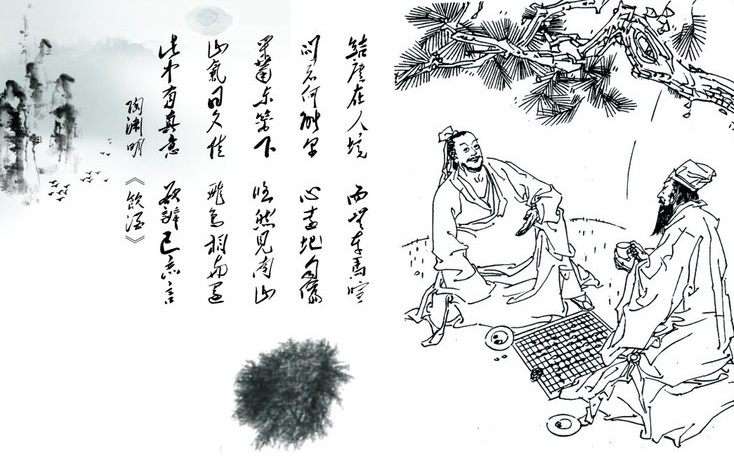 結廬在人境　而無車馬喧
問君何能爾　心遠地自偏
采菊东籬下　悠然見南山
山氣日夕佳　飛鳥相與還
此中有真意　欲辨已忘言
陶渊明《飲酒》